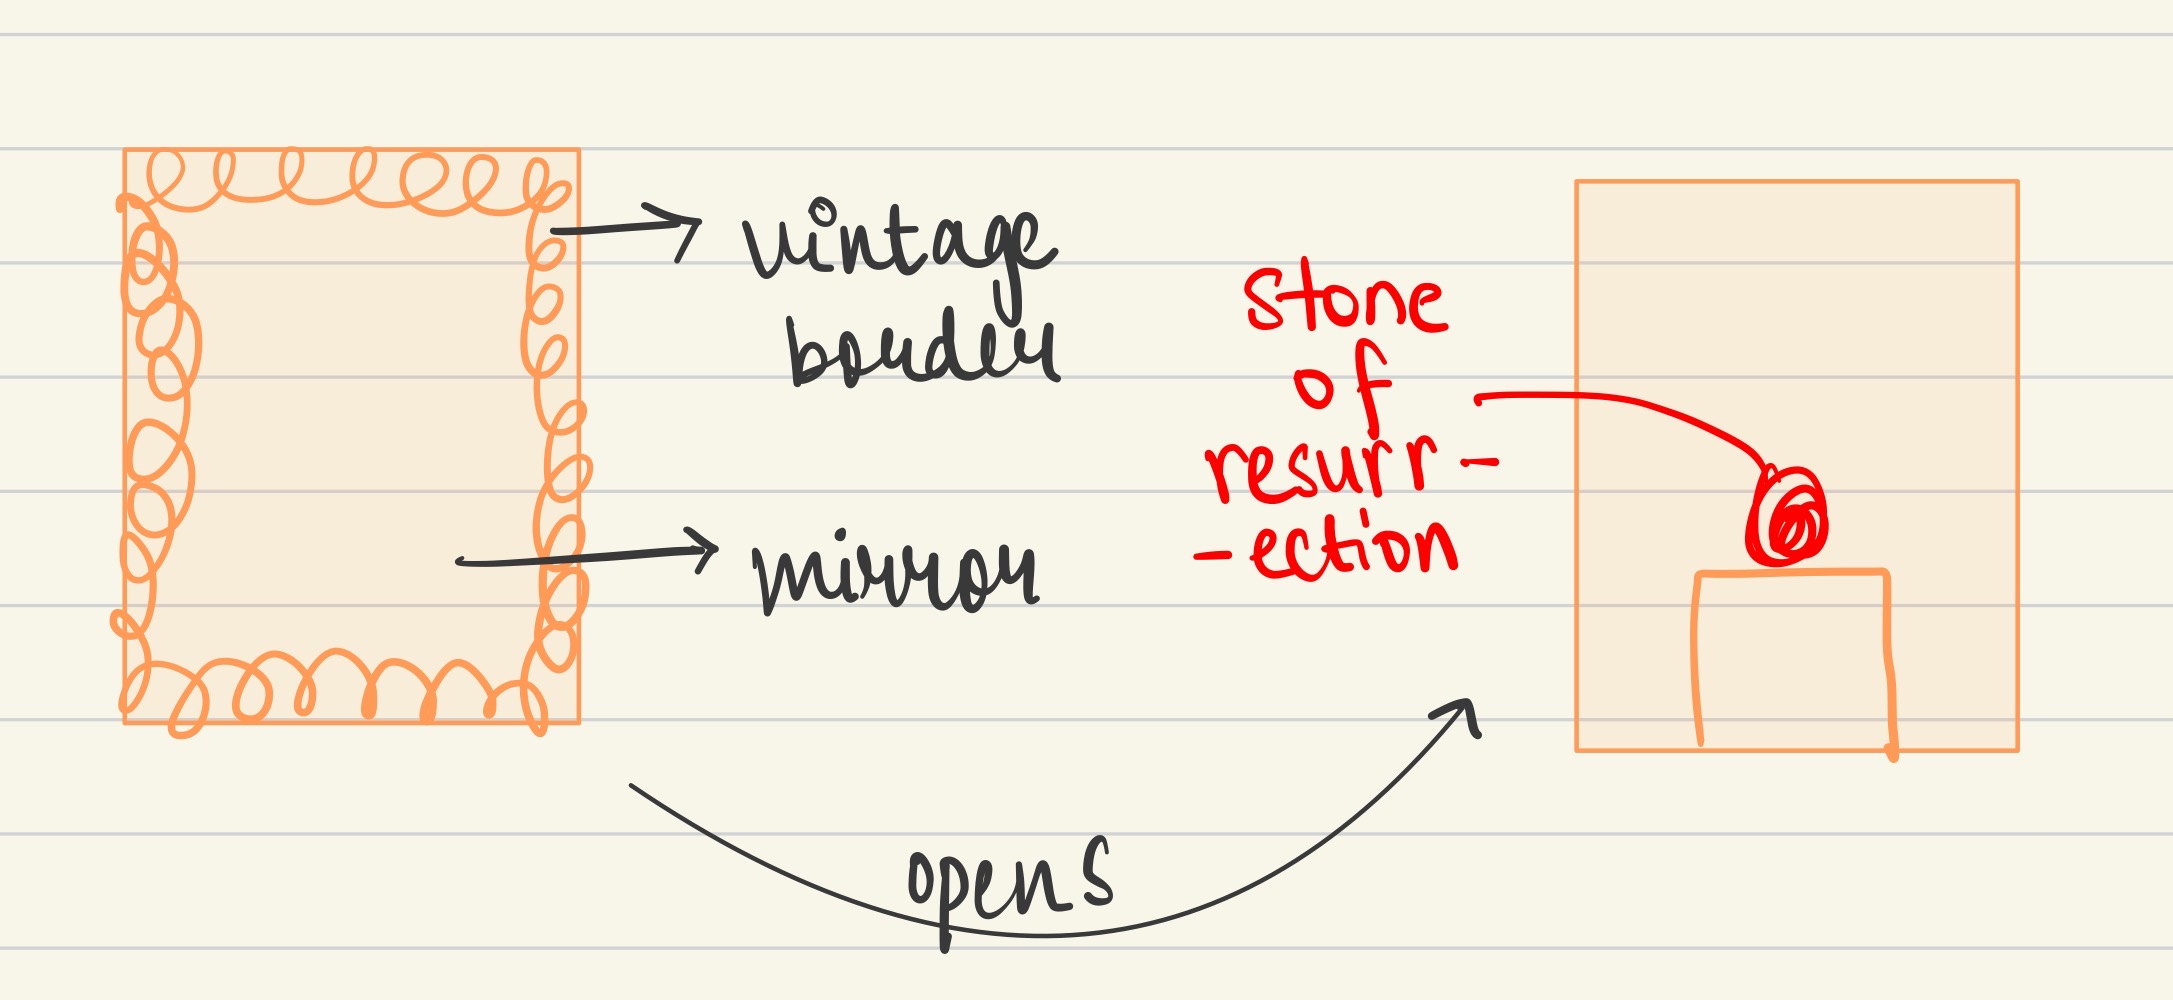 vintage
border
mirror
stone
of
resurr-
-ection
opens